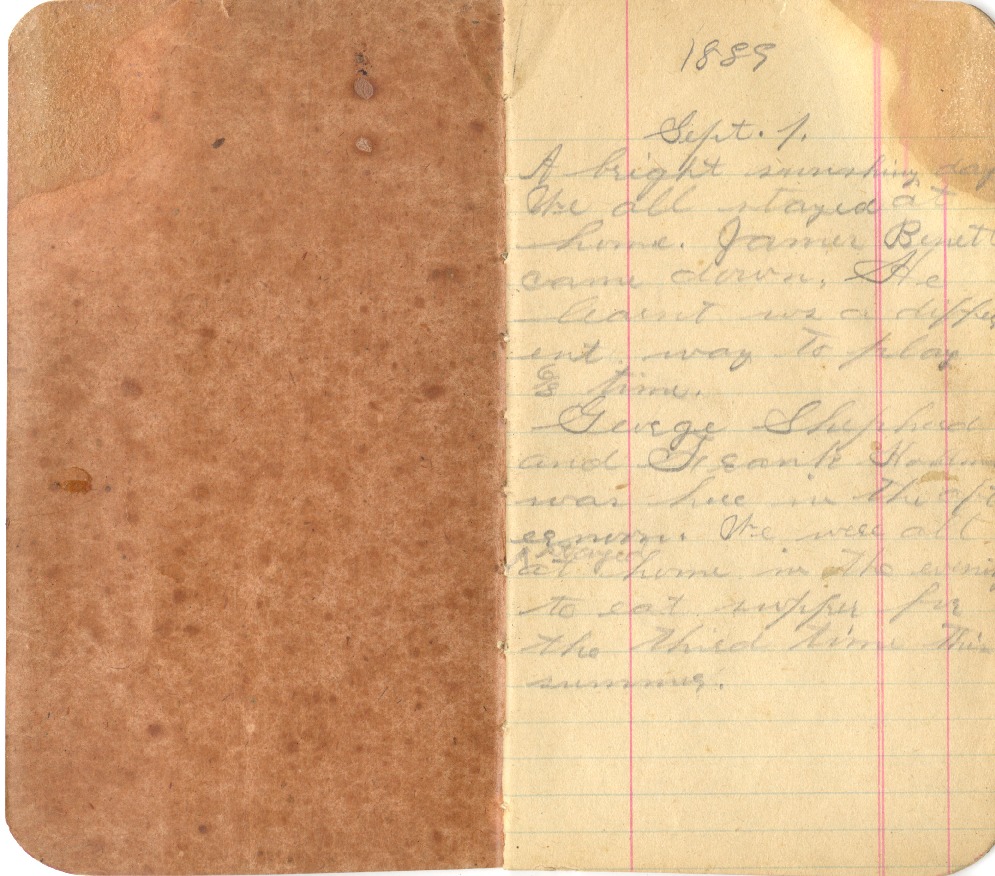 1889
Sept. 1.
A bright sunshiny day
We all stayed at
home. James Binett
came down. He
learnt us a differ
ent way to play
6/8 time.
George Shepherd
and Frank
was here in the aft
ernoon. We were all
stayed
at home in the evening
to eat supper for
the third time this
summer.